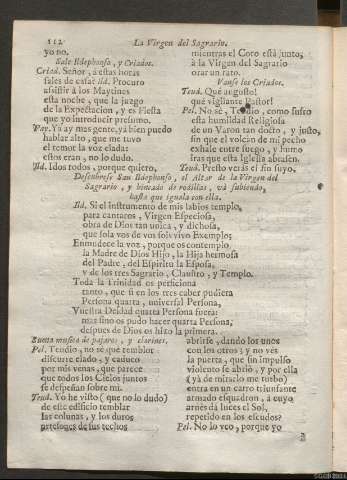 112 La Virgen del Sagrario.
yo no.
Sale Ildephonso, y Criados.
Criad. Señor, à estas horas
sales de casa? Ild. Procuro
assistir à los Maytines
esta noche, que la juzgo
de la Expectacion, y es Fiesta
que yo introducir presumo.
Vor. Ya ay mas gente, ya bien puedo
hablar alto, que me tuvo
el temor la voz elada:
estos eran, no lo dudo.
Ild. Idos todos, porque quiero,
mientras el Coro està junto,
à la Virgen del Sagrario
orar un rato.
Vanse los Criados.
Teud. Què augusto!
què vigilante Pastor!
Pel. No sè, Teudio, como sufro
esta humildad Religiosa
de un Varon tan docto, y justo,
sin que el volcàn de mi pecho
exhale entre fuego, y humo
iras que esta Iglesia abrasen.
Teud. Presto veràs el fin suyo.
Descubrese San Ildephonso, el Altar de la Virgen del
Sagrario, y hincado de rodillas, và subiendo,
hasta que iguala con ella.
Ild. Si el instrumento de mis labios templo,
para cantaros, Virgen Especiosa,
obra de Dios tan unica, y dichosa,
que sola vos de vos sois vivo Exemplo;
Enmudece la voz, porque os contemplo
la Madre de Dios Hijo, la Hija hermosa
del Padre, del Espiritu la Esposa,
y de los tres Sagrario, Claustro, y Templo.
Toda la Trinidad os perficiona
tanto, que si en los tres caber pudiera
Persona quarta, universal Persona,
Vuestra Deidad quarta Persona fuera:
mas sino os pudo hacer quarta Persona,
despues de Dios os hizo la primera.
Suena musica de pajaros, y clarines.
Pel. Teudio, no sè què temblor
discurre elado, y caduco
por mis venas, que parece
que todos los Cielos juntos
se despeñan sobre mi.
Teud. Yo he visto (que no lo dudo)
de este edificio temblar
las colunas, y los duros
artesones de sus techos
abrirse, dando los unos
con los otros; y no vès
la puerta, que sin impulso
violento se abriò, y por ella
(yà de mirarlo me turbo)
entra en un carro triunfante
armado esquadron, à cuyo
arnès dà luces el Sol,
repetido en los escudos?
Pel. No lo veo, porque yo